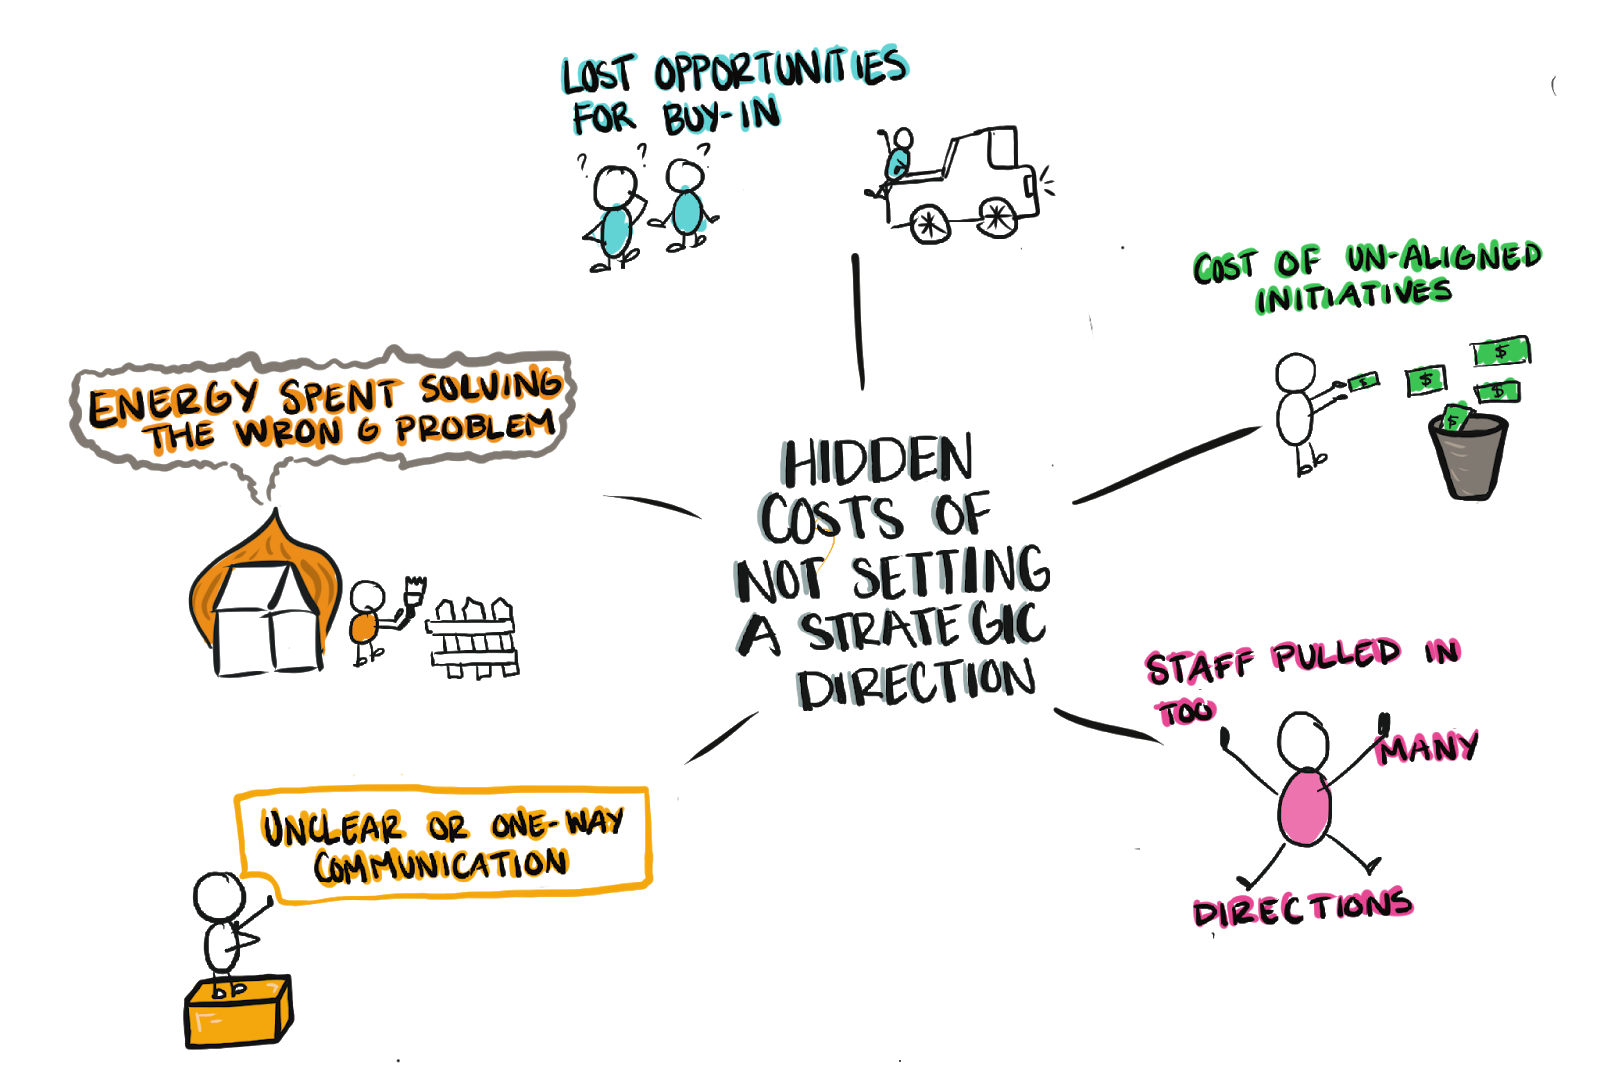 LOST OPPORTUNITIES
FOR BUY-IN
? ? ?
COST OF UN-ALIGNED
INITIATIVES
$
$
$
$
$
ENERGY SPENT SOLVING
THE WRONG PROBLEM
HIDDEN
COSTS OF
NOT SETTING
A STRATEGIC
DIRECTION
STAFF PULLED IN
TOO
MANY
DIRECTIONS
UNCLEAR OR ONE-WAY
COMMUNICATION